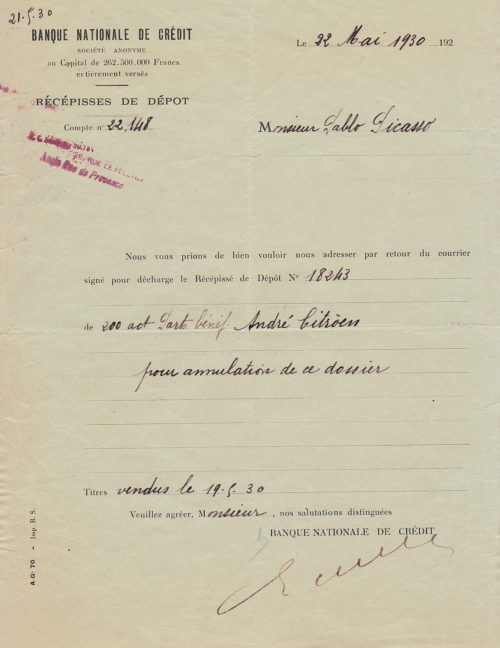 21.5.30
BANQUE NATIONALE DE CRÉDIT
SOCIÉTÉ ANONYME
au Capital de 262.500.000 Francs
entièrement versés
RÉCÉPISSES DE DÉPOT
Compte n° 22.148
Le 22 Mai 1930 192
Monsieur Pablo Picasso
RUE LE PELETIER
Angle Rue de Provence
Nous vous prions de bien vouloir nous adresser par retour du courrier
signé pour décharge le Récépissé de Dépôt N° 18243
de 200 act Parts bénéf. André Citröen
pour annulation de ce dossier
Titres vendus le 19.5.30
Veuillez agréer, Monsieur, nos salutations distinguées
BANQUE NATIONALE DE CRÉDIT
A G. 70 • Imp. B. S.